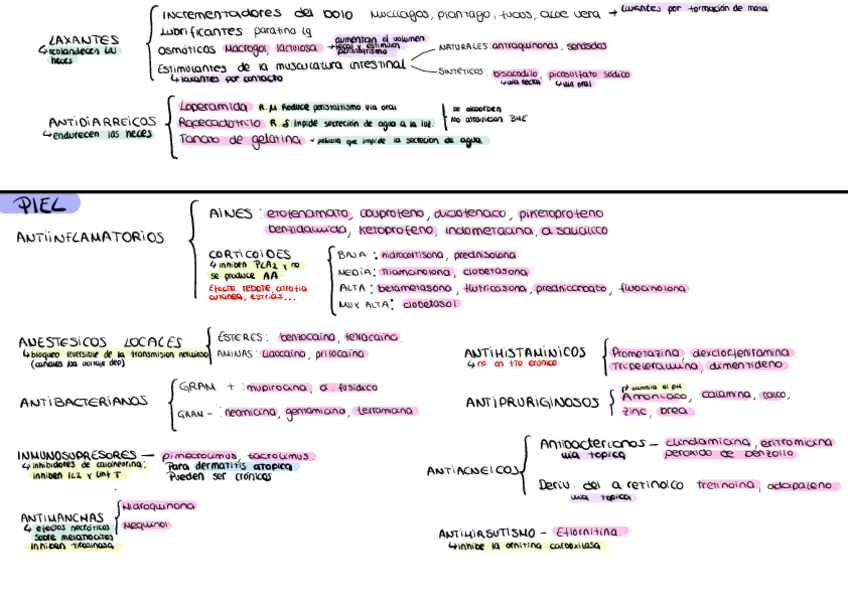 LAXANTES
↳ reblandecen las heces
Incrementadores del bolo Mucílagos, plantago, fucus, aloe vera → Laxantes por formación de masa
Lubrificantes parafina lq
Osmóticos Macrogol, lactulosa → aumentan el volumen fecal y estimulan peristaltismo
Estimulantes de la musculatura intestinal
↳ laxantes por contacto
NATURALES: antraquinonas, senósidos
SINTÉTICOS: bisacodilo, picosulfato sódico
↳ vía rectal ↳ vía oral
ANTIDIARREICOS
↳ endurecen las heces
Loperamida R.μ Reduce peristaltismo. Vía oral
Racecadotrilo R.δ Impide secreción de agua a la luz.
Tanato de gelatina → película que impide la secreción de agua.
se absorben
No atraviesan BHE
PIEL
ANTIINFLAMATORIOS
AINES: etofenamato, ibuprofeno, diclofenaco, piketoprofeno
bencidamida, ketoprofeno, indometacina, a. salicílico
CORTICOIDES
↳ inhiben PLA2 y no se produce AA
Efecto rebote, atrofia cutánea, estrías...
BAJA: hidrocortisona, prednisolona
MEDIA: triamcinolona, clobetasona
ALTA: betametasona, fluticasona, prednicarbato, fluocinolona
MUY ALTA: clobetasol
ANESTESICOS LOCALES
↳ bloqueo reversible de la transmisión nerviosa
(canales Na voltaje dep)
ÉSTERES: benzocaína, tetracaína
AMINAS: lidocaína, prilocaína
ANTIHISTAMINICOS
↳ no en tto crónico
Prometazina, dexclorfeniramina
Tripelenamina, dimentideno
ANTIBACTERIANOS
GRAM +: mupirocina, a. fusídico
GRAM -: neomicina, gentamicina, terramicina
ANTIPRURIGINOSOS
cambia el pH
Amoniaco, calamina, talco,
zinc, brea
INMUNOSUPRESORES — pimecrolimus, tacrolimus.
↳ inhibidores de calcineurina:
inhiben IL2 y linf T
Para dermatitis atopica
Pueden ser crónicos
ANTIACNEICOS
Antibacterianos — clindamicina, eritromicina
vía tópica peróxido de benzoilo
Deriv. del a retinoico tretinoína, adapaleno
vía tópica
ANTIMANCHAS
↳ efectos necróticos
sobre melanocitos
Inhiben tirosinasa
Hidroquinona
Mequinol
ANTIHIRSUTISMO - Eflornitina
↳ inhibe la ornitina carboxilasa